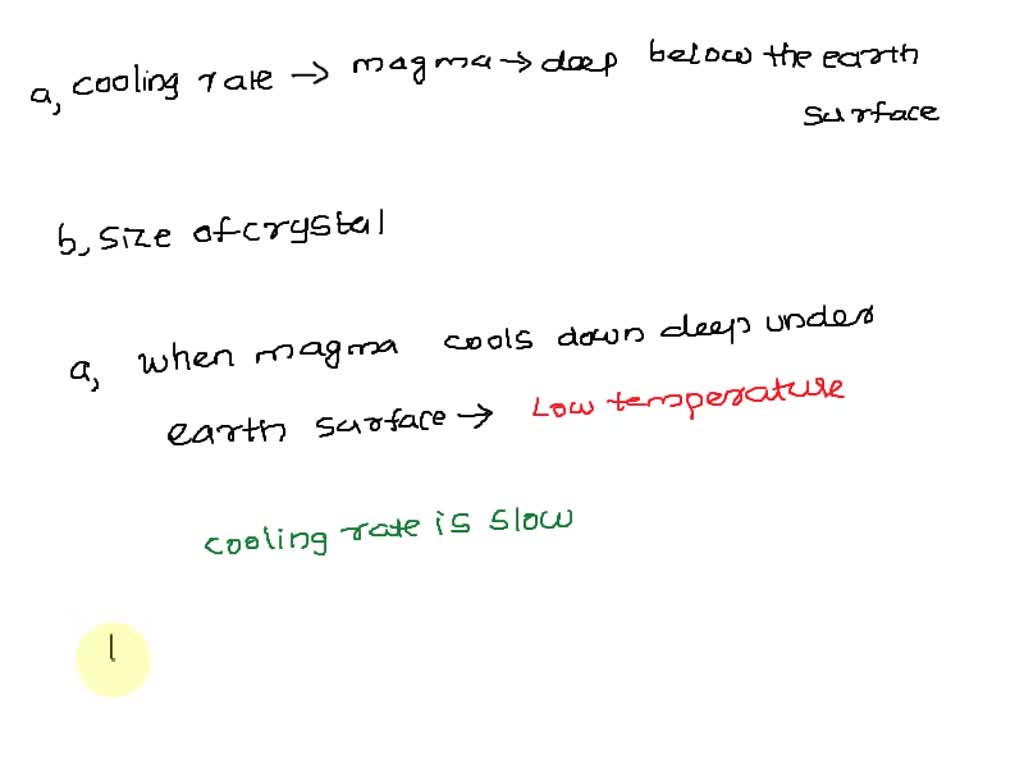 a, cooling rate → magma → deep below the earth
surface
b, size of crystal
a, when magma cools down deep under
earth surface → Low temperature
cooling rate is slow